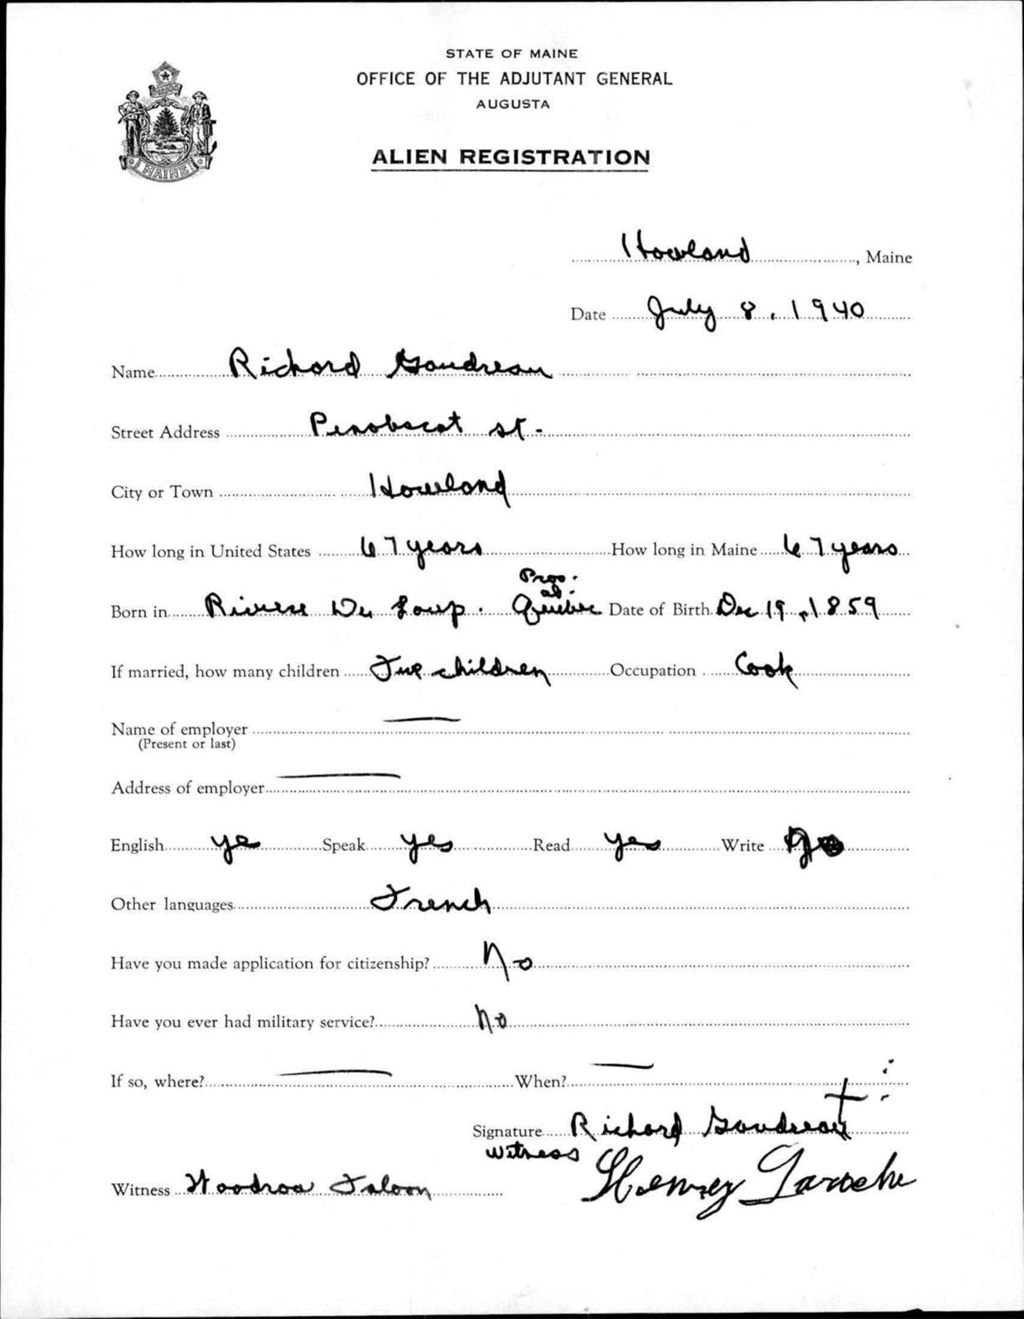 STATE OF MAINE
OFFICE OF THE ADJUTANT GENERAL
AUGUSTA
ALIEN REGISTRATION
MAINE
Howland, Maine
Date July 8, 1940
Name Richard Goudreau
Street Address Penobscot st.
City or Town Howland
How long in United States 67 years How long in Maine 67 years
Prov. of
Born in Riviere Du Loup. Quebec Date of Birth Dec 19, 1859
If married, how many children Five children Occupation Cook
Name of employer —
(Present or last)
Address of employer —
English yes Speak yes Read yes Write
Other languages French
Have you made application for citizenship? No
Have you ever had military service? No
If so, where? — When? —
Signature Richard Goudreau
witness
Witness Woodrow Henry Laroche